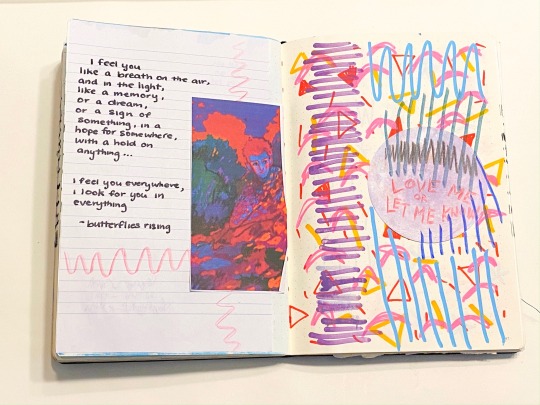 I feel you
like a breath on the air,
and in the light,
like a memory,
or a dream,
or a sign of
something, in a
hope for somewhere,
with a hold on
anything...
I feel you everywhere,
i look for you in
everything
- butterflies rising
LOVE ME
OR
LET ME